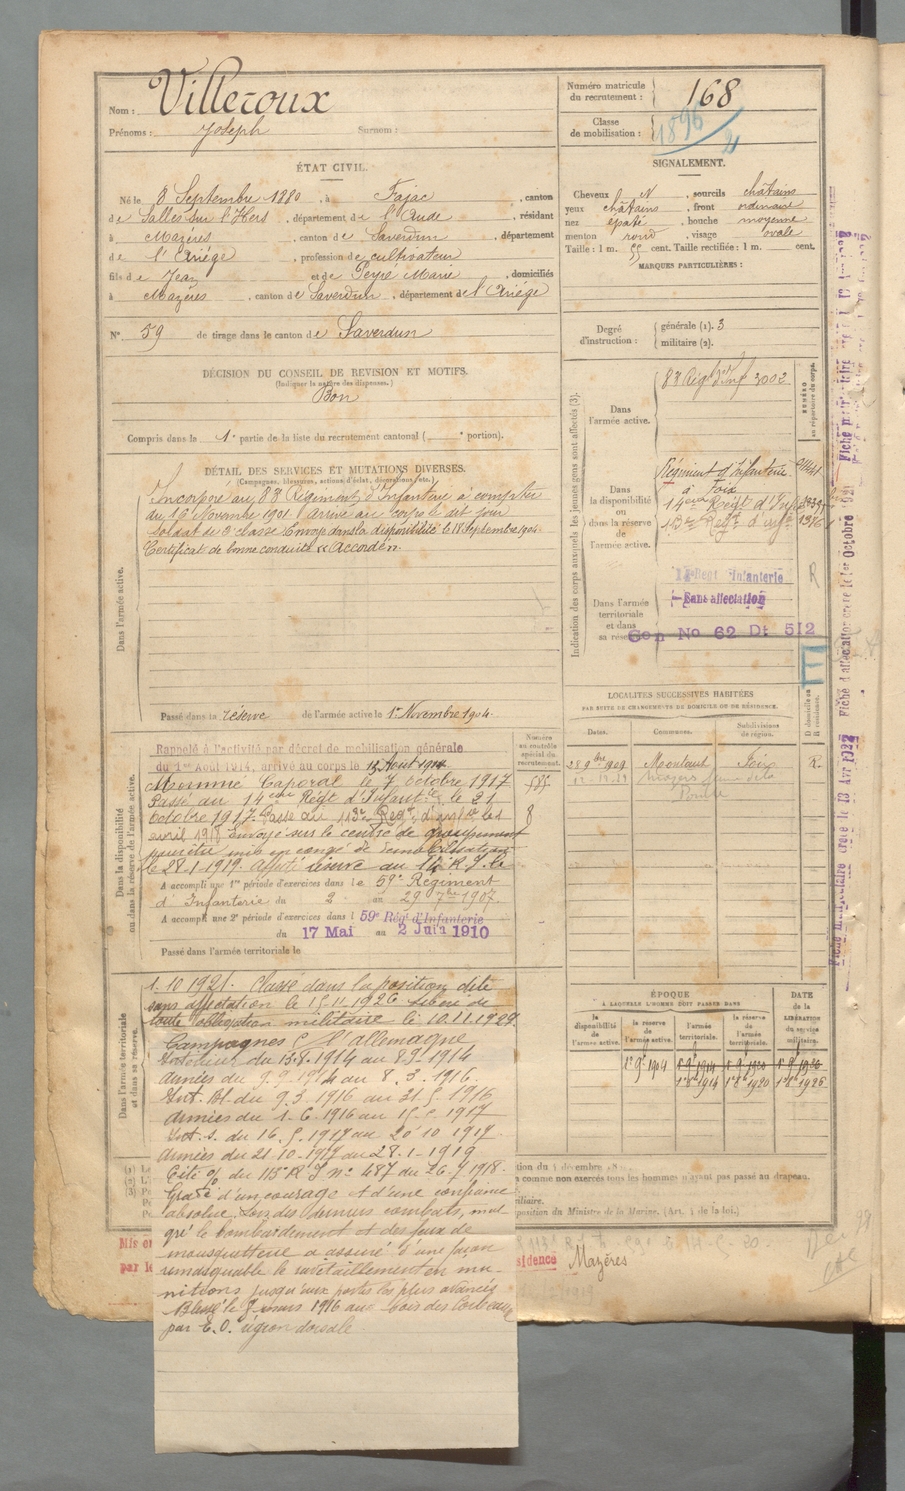 Nom : Villeroux
Prénoms : Joseph Surnom :
Numéro matricule du recrutement : 168
Classe de mobilisation : 1896
ÉTAT CIVIL.
Né le 8 Septembre 1880, à Fajac, canton
de Salles sur l'Hers, département de l'Aude, résidant
à Mazères, canton de Saverdun, département
de l'Ariège, profession de cultivateur
fils de Jean et de Peyre Marie, domiciliés
à Mazères, canton de Saverdun, département de l'Ariège
N° 59 de tirage dans le canton de Saverdun
SIGNALEMENT.
Cheveux N, sourcils châtains
yeux châtains, front ordinaire
nez épaté, bouche moyenne
menton rond, visage ovale
Taille : 1 m. 55 cent. Taille rectifiée : 1 m. cent.
MARQUES PARTICULIÈRES :
Degré d'instruction : générale (1). 3
militaire (2).
DÉCISION DU CONSEIL DE REVISION ET MOTIFS.
(Indiquer la nature des dispenses.)
Bon
Compris dans la 1e partie de la liste du recrutement cantonal ( e portion).
DÉTAIL DES SERVICES ET MUTATIONS DIVERSES.
(Campagnes, blessures, actions d'éclat, décorations, etc.)
Dans l'armée active.
Incorporé au 83e Régiment d'Infanterie à compter
du 16 Novembre 1901. Arrivé au corps le dit jour
soldat de 2e classe. Envoyé dans la disponibilité le 18 Septembre 1904.
Certificat de bonne conduite "Accordé".
Passé dans la réserve de l'armée active le 1er Novembre 1904.
Indication des corps auxquels les jeunes gens sont affectés (3).
NUMÉRO au répertoire du corps.
Dans l'armée active.
83 Régt d'Inf 3002
Dans la disponibilité ou dans la réserve de l'armée active.
Régiment d'Infanterie
à Foix
14eme Régt d'Inf
Dans l'armée territoriale et dans sa réserve
Régt Infanterie
Sans affectation
Gon No 62 Dt 512
R
LOCALITÉS SUCCESSIVES HABITÉES
PAR SUITE DE CHANGEMENTS DE DOMICILE OU DE RÉSIDENCE.
Dates. Communes. Subdivisions de région. D domicile ou R résidence.
28 9bre 1909 Montaut Foix R.
Dans la disponibilité ou dans la réserve de l'armée active.
Numéro au contrôle spécial du recrutement.
Rappelé à l'activité par décret de mobilisation générale
du 1er Août 1914, arrivé au corps le 13 Août 1914
Nommé Caporal le 7 octobre 1917
Passé au 14eme Régt d'Infantie le 21
Octobre 1917. Passé au 113e Régt d'infie le 1
avril 1918 envoyé sur le centre de groupement
pour être mis en congé de démobilisation
le 28-1-1919. Affecté réserve au 14e R.I. le
A accompli une 1re période d'exercices dans le 59e Régiment
d'Infanterie du 2 au 29 7bre 1907.
A accompli une 2e période d'exercices dans l 59e Régt d'Infanterie
du 17 Mai au 2 Juin 1910
Passé dans l'armée territoriale le
Dans l'armée territoriale et dans sa réserve.
1.10 1921. Classé dans la position dite
sans affectation le 15.11.1926 Libéré de
toute obligation militaire le 10.11.1929.
Campagnes c/ l'allemagne
Intérieur du 13.8.1914 au 8 9.1914
Armées du 9.9.1914 au 8.3.1916.
Int. Bl. du 9.3.1916 au 31 5.1916
Armées du 1.6.1916 au 15.5.1917
Int. s. du 16.5.1917 au 20 10 1917
Armées du 21-10-1917 au 28-1-1919
Cité % du 115 R I n° 487 du 26-7-1918.
Gradé d'un courage et d'une confiance
absolue. Lors des derniers combats, mal
gré le bombardement et des feux de
mousqueterie a assuré d'une façon
remarquable le ravitaillement en mu-
nitions jusqu'aux postes les plus avancés
Blessé le 8 mars 1916 aux bois des Corbeaux
par E.O. région dorsale
ÉPOQUE
À LAQUELLE L'HOMME DOIT PASSER DANS
DATE de la LIBÉRATION du service militaire.
la disponibilité de l'armée active. la réserve de l'armée active. l'armée territoriale. la réserve de l'armée territoriale.
1er 9bre 1904
comme non exercés tous les hommes n'ayant pas passé au drapeau.
disposition du Ministre de la Marine. (Art. de la loi.)
Mazères